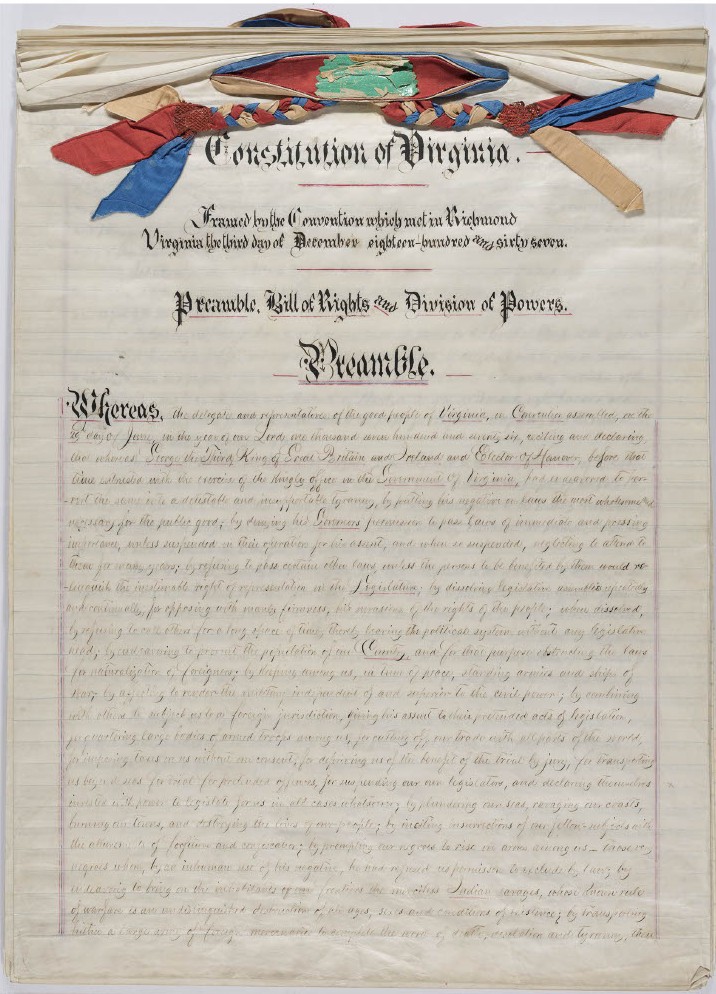 Constitution of Virginia.
Framed by the Convention which met in Richmond
Virginia the third day of December eighteen-hundred and sixty seven.
Preamble, Bill of Rights and Division of Powers.
Preamble.
Whereas, the delegates and representatives of the good people of Virginia, in Convention assembled, on the
29th day of June, in the year of our Lord one thousand seven hundred and seventy six, reciting and declaring,
that whereas George the Third, King of Great Britain and Ireland and Elector of Hanover, before that
time entrusted with the exercise of the kingly office in the Government of Virginia, had endeavored to per-
-vert the same into a detestable and insupportable tyranny, by putting his negative on laws the most wholesome and
necessary for the public good; by denying his Governors permission to pass laws of immediate and pressing
importance, unless suspended in their operation for his assent, and when so suspended, neglecting to attend to
them for many years; by refusing to pass certain other laws, unless the persons to be benefited by them would re-
-linquish the inestimable right of representation in the Legislature; by dissolving legislative assemblies repeatedly
and continually, for opposing with manly firmness, his invasions of the rights of the people; when dissolved,
by refusing to call others for a long space of time, thereby leaving the political system without any legislative
head; by endeavoring to prevent the population of our Country, and for that purpose obstructing the laws
for naturalization of foreigners; by keeping among us, in time of peace, standing armies and ships of
war; by affecting to render the military independent of and superior to the civil power; by combining
with others to subject us to a foreign jurisdiction, giving his assent to their pretended acts of legislation,
for quartering large bodies of armed troops among us, for cutting off our trade with all parts of the world,
for imposing taxes on us without our consent, for depriving us of the benefit of the trial by jury, for transporting
us beyond seas for trial for pretended offences, for suspending our own legislature, and declaring themselves
invested with power to legislate for us in all cases whatsoever; by plundering our seas, ravaging our coasts,
burning our towns, and destroying the lives of our people; by inciting insurrections of our fellow-subjects with
the allurements of forfeiture and confiscation; by prompting our negroes to rise in arms among us - those very
negroes whom, by an inhuman use of his negative, he had refused us permission to exclude by law; by
endeavoring to bring on the inhabitants of our frontiers the merciless Indian savages, whose known rule
of warfare is an undistinguished destruction of all ages, sexes and conditions of existence; by transporting
hither a large army of foreign mercenaries to complete the work of death, desolation and tyranny, then